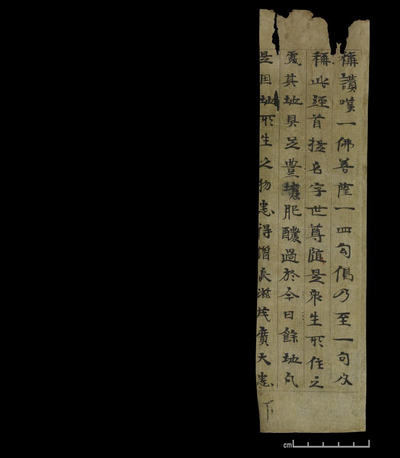 稱讚嘆一佛菩薩一四句偈乃至一句以
稱此經首提名字世尊隨是眾生所住之
處其地具足豐壤肥醲過於今日餘地凡
是因地所生之物悉得增長滋茂廣大悉
下
cm